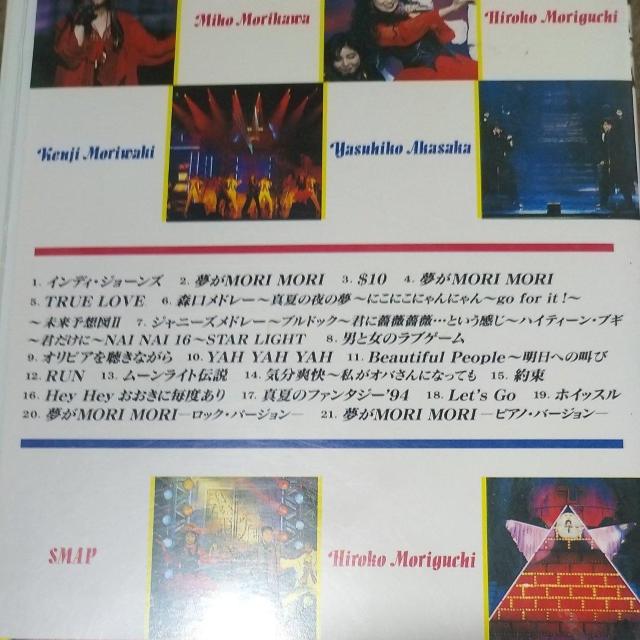 Miko Morikawa
Hiroko Moriguchi
Kenji Moriwaki
Yasuhiko Akasaka
1. インディ・ジョーンズ 2. 夢がMORI MORI 3. $10 4. 夢がMORI MORI
5. TRUE LOVE 6. 森口メドレー〜真夏の夜の夢〜にこにこにゃんにゃん〜go for it!〜
〜未来予想図II 7. ジャニーズメドレー〜ブルドック〜君に薔薇薔薇…という感じ〜ハイティーン・ブギ
〜君だけに〜NAI NAI 16〜STAR LIGHT 8. 男と女のラブゲーム
9. オリビアを聴きながら 10. YAH YAH YAH 11. Beautiful People〜明日への叫び
12. RUN 13. ムーンライト伝説 14. 気分爽快〜私がオバさんになっても 15. 約束
16. Hey Hey おおきに毎度あり 17. 真夏のファンタジー'94 18. Let's Go 19. ホイッスル
20. 夢がMORI MORI—ロック・バージョン— 21. 夢がMORI MORI—ピアノ・バージョン—
SMAP
Hiroko Moriguchi